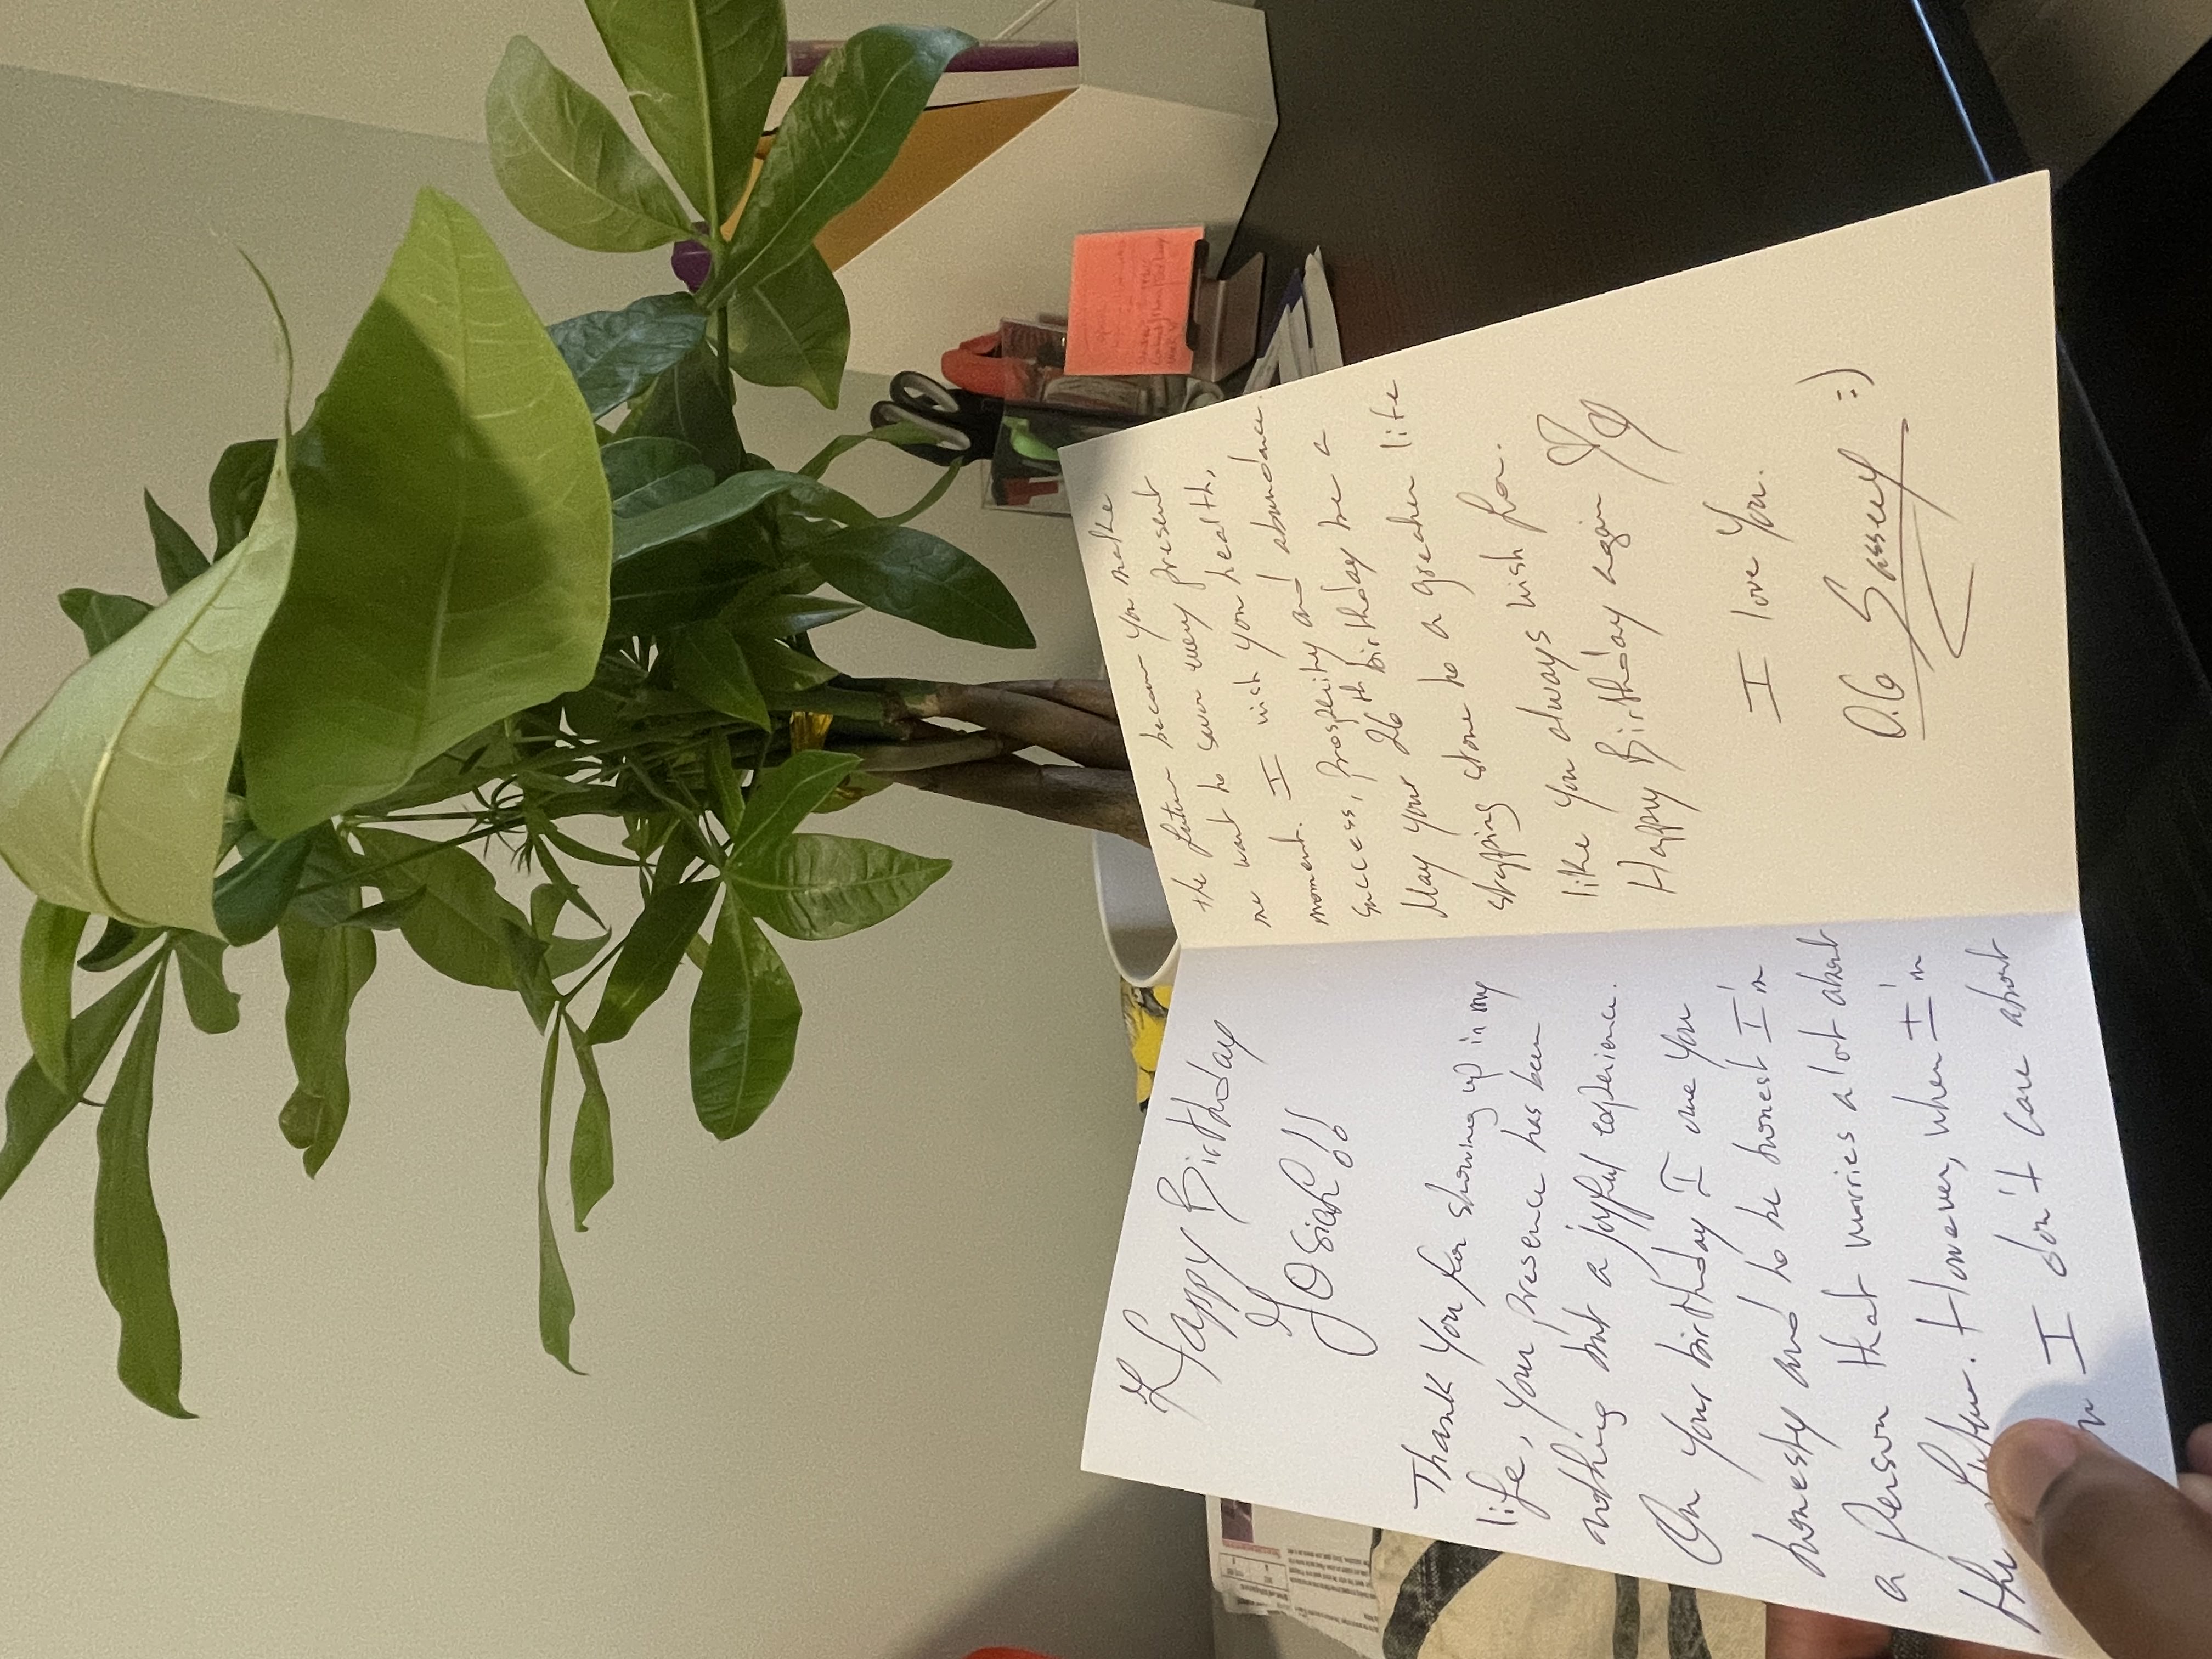 Happy Birthday
Josiah!!
Thank You for showing up in my
life, your presence has been
nothing but a joyful experience.
On your birthday I owe you
honesty and to be honest I'm
a person that worries a lot about
the future. However, when I'm
I don't care about
the future because you make
me want to savor every present
moment. I wish you health,
success, prosperity and abundance.
May your 26th birthday be a
stepping stone to a greater life
like you always wish for.
Happy Birthday again
I love You.
O.G Sassecy :)